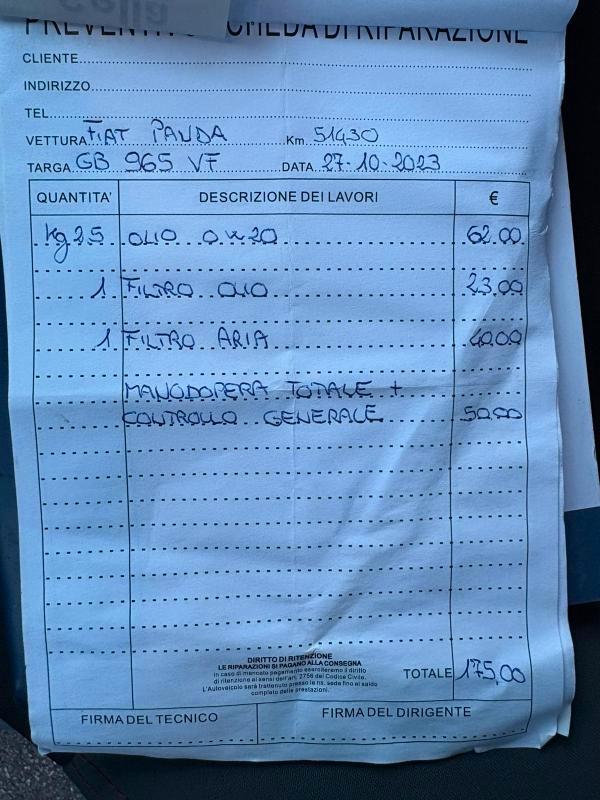 CLIENTE
INDIRIZZO
TEL
VETTURA FIAT PANDA Km. 51430
TARGA GB 965 VF DATA 27-10-2023
QUANTITA' DESCRIZIONE DEI LAVORI €
Kg 2.5 OLIO 0W20 62.00
1 FILTRO OLIO 23.00
1 FILTRO ARIA 40.00
MANODOPERA TOTALE +
CONTROLLO GENERALE 50.00
DIRITTO DI RITENZIONE
LE RIPARAZIONI SI PAGANO ALLA CONSEGNA
in caso di mancato pagamento eserciteremo il diritto
di ritenzione ai sensi dell'art. 2756 del Codice Civile.
L'Autoveicolo sarà trattenuto presso la ns. sede fino al saldo
completo delle prestazioni.
TOTALE 175,00
FIRMA DEL TECNICO FIRMA DEL DIRIGENTE